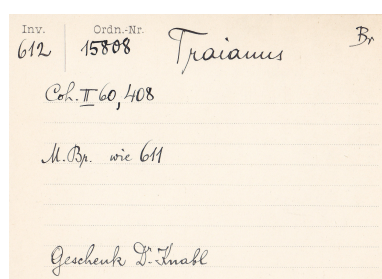 Inv. Ordn.-Nr.
612 15808 Traianus Br
Coh. II 60, 408
M.Br. wie 611
Geschenk Dr. Knabl